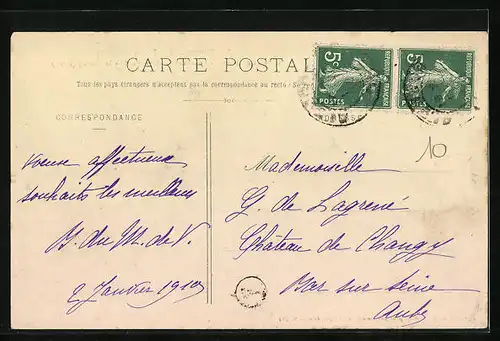 CARTE POSTAL
Tous les pays étrangers n'acceptent pas la correspondance au recto
CORRESPONDANCE
5c
REPUBLIQUE FRANÇAISE
POSTES
5c
REPUBLIQUE FRANÇAISE
POSTES
10
voeux affectueux
souhaits les meilleurs
B. du M. de V.
2 Janvier 1910
Mademoiselle
G. de Lagrené
Château de Changy
Bar sur Seine
Aube